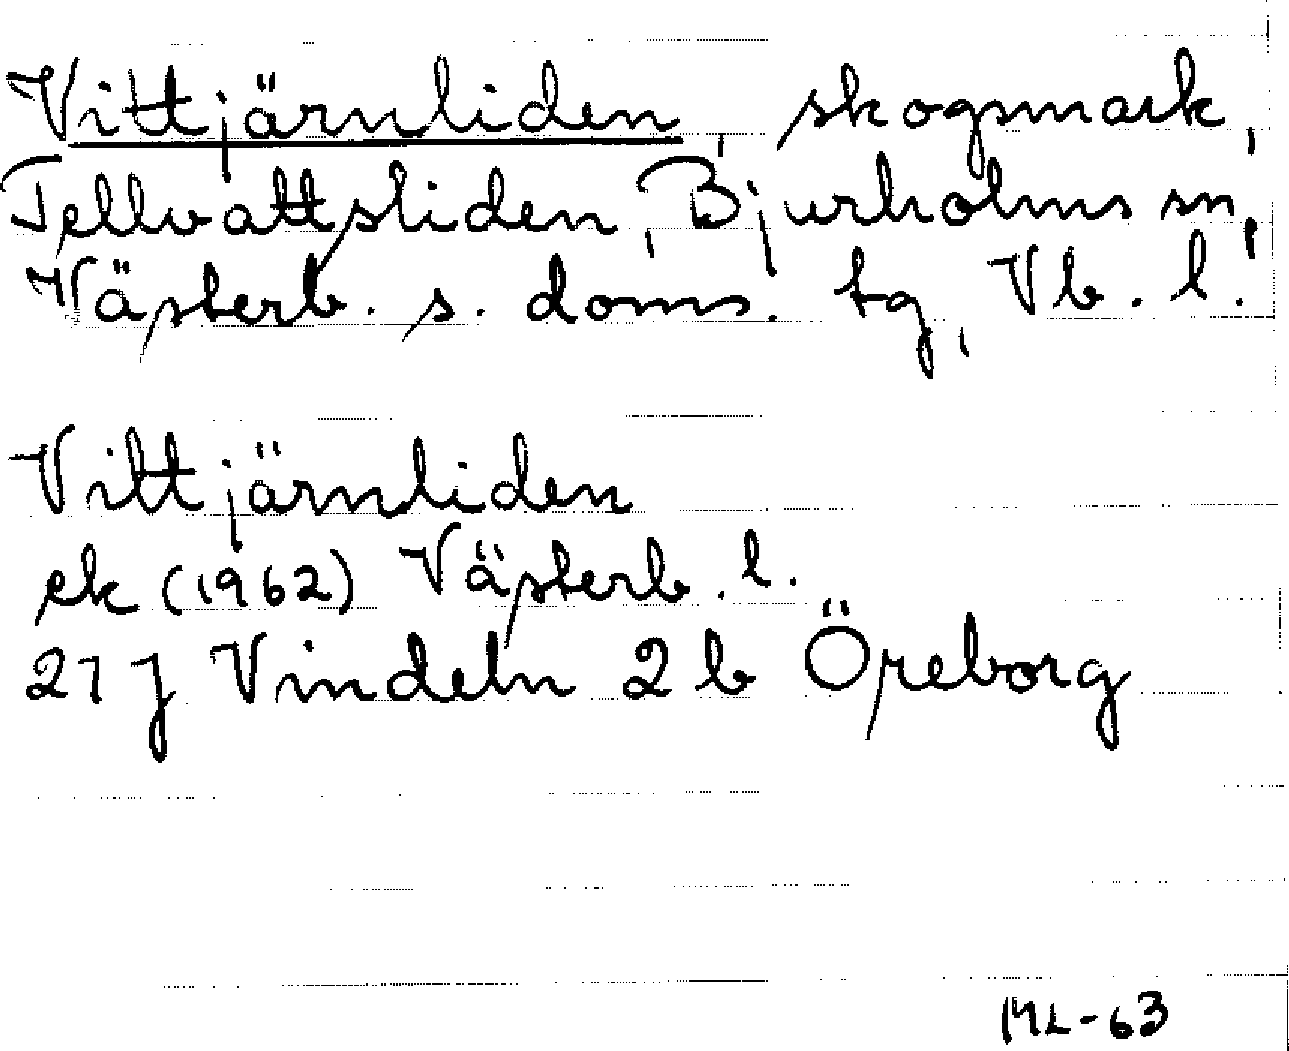 Vittjärnliden, skogsmark,
Tellvattsliden, Bjurholms sn,
Västerb. s. doms. tg, Vb. l.
Vittjärnliden
ek (1962) Västerb. l.
21 J Vindeln 2 b Öreborg
ML-63